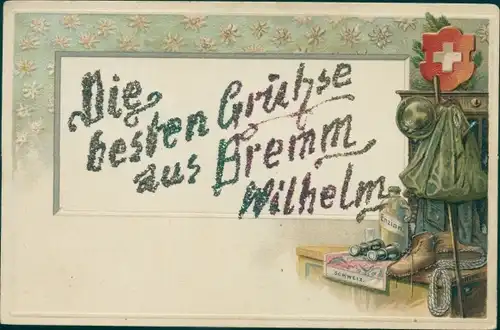 Die
besten Grühse
aus Bremm
Wilhelm
Enzian
SCHWEIZ.